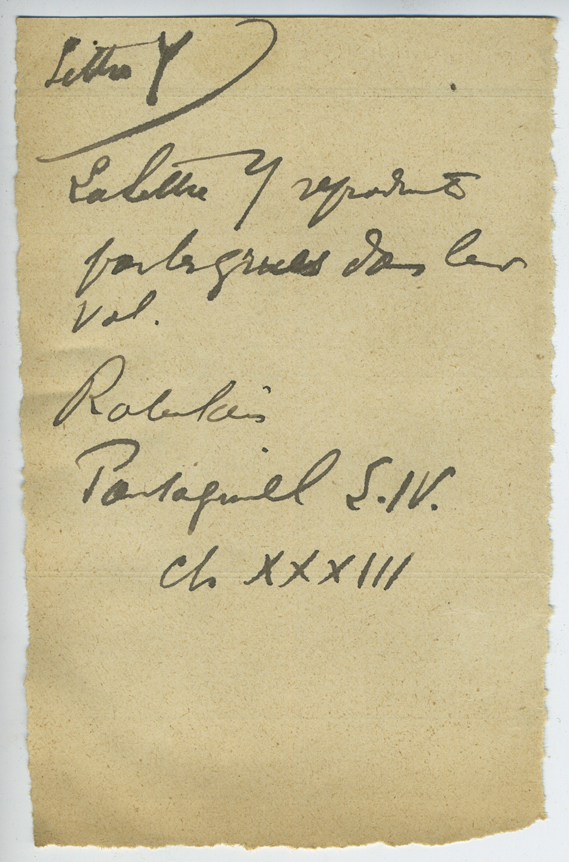 Lettre Y
La lettre Y reproduite
par les grues dans leur
vol.
Rabelais
Pantagruel L. IV.
ch XXXIII